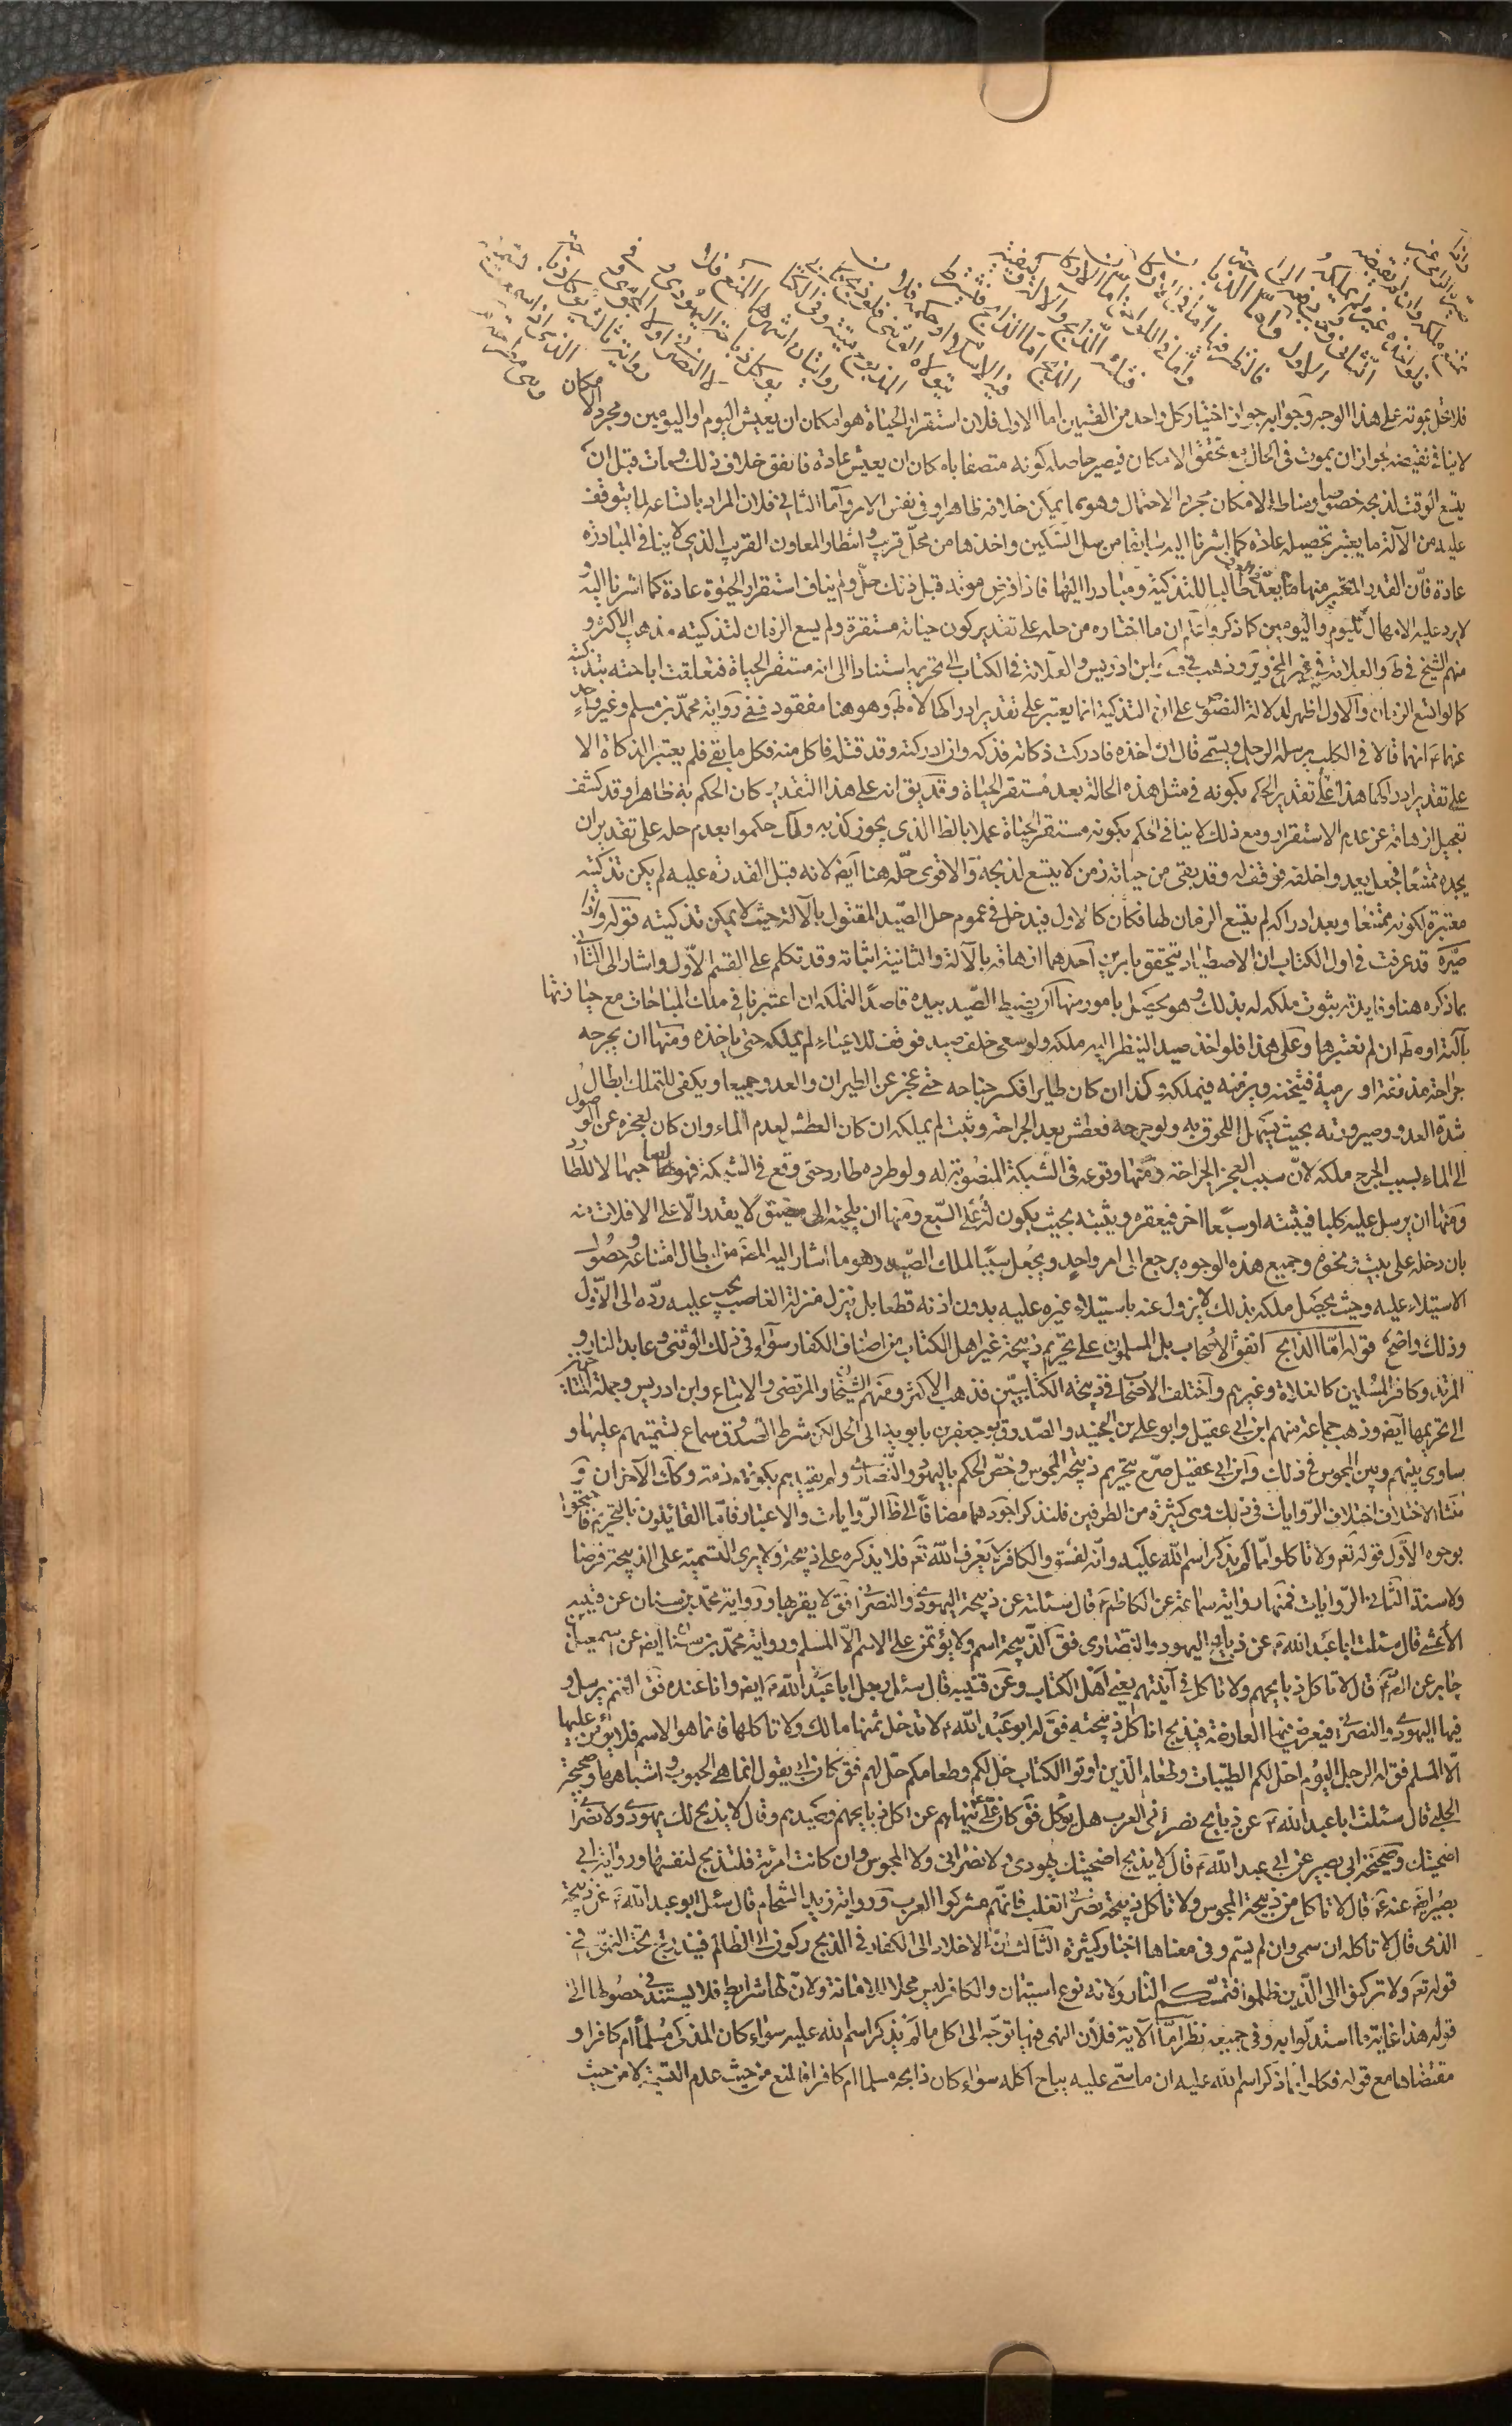 فلا تحل بموته على هذا الوجه وجوابه جواز اختيار كل واحد من القسمين اما الاول فلان استقرار الحياة هو امكان ان يعيش اليوم او اليومين ومجرد الامكان
لا ينافى نقيضه لجواز ان يموت فى الحال مع تحقق الامكان فيصير حاصله كونه متصفا بامكان ان يعيش عادة فاتفق خلاف ذلك ومات قبل ان
يتسع الوقت لذبحه خصوصا ومناط الامكان مجرد الاحتمال وهو مما يمكن خلافه ظاهرا وفى نفس الامر وآما الثانى فلان المراد باتساعه لما يتوقف
عليه من الآلة ما يعتبر تحصيله عادة كما اشرنا اليه سابقا من سل السكين واخذها من محل قريب وانتظار المعاون القريب الذى لا ينافى المبادرة
عادة فان القدر المعتبر منها ما يعد طالبا للتذكية ومبادرا اليها فاذا فرض موته قبل ذلك حل ولم يناف استقرار الحيوة عادة كما اشرنا اليه و
لا يرد عليه الامهال لليوم واليومين كما ذكر واعلم ان ما اختاره من حله على تقدير كون حياته مستقرة ولم يسع الزمان لتذكيته مذهب الاكثر و
منهم الشيخ فى ط والعلامة فى غير التحرير وذهب فى ف وابن ادريس والعلامة فى الكتاب الى تحريمه استنادا الى انه مستقر الحياة فتعلقت اباحته بتذكيته
كما لو اتسع الزمان وآلاول اظهر لدلالة النصوص على ان التذكية انما يعتبر على تقدير ادراكها لا مط وهو هنا مفقود ففى رواية محمد بن مسلم وغير واحد
عنهما ع انهما قالا فى الكلب يرسله الرجل ويسمى قال ان اخذه فادركت ذكاته فذكه وان ادركته وقد قتله فاكل منه فكل ما بقى فلم يعتبر الذكاة الا
على تقدير ادراكها هذا على تقدير الحكم بكونه فى مثل هذه الحالة بعد مستقر الحياة وقد يق انه على هذا التقدير كان الحكم به ظاهرا وقد كشف
تعجيل ازهاقه عن عدم الاستقرار ومع ذلك لا ينافى الحكم بكونه مستقر الحياة عملا بالظاهر الذى يجوز كذبه ولما حكموا بعدم حله على تقدير ان
يجده ممتنعا فجعل يعدو خلفه فوقف له وقد بقى من حياته زمن لا يتسع لذبحه والاقوى حله هنا ايض لانه قبل القدرة عليه لم يكن تذكيته
معتبرة لكونه ممتنعا وبعد ادراكه لم يتسع الزمان لها فكان كالاول فيدخل فى عموم حل الصيد المقتول بالآلة حيث لا يمكن تذكيته قوله واذا
صيره قد عرفت فى اول الكتاب ان الاصطياد يتحقق بامرين احدهما ازهاقه بالآلة والثانية اثباته وقد تكلم على القسم الاول واشار الى الثانى
بما ذكره هنا وفايدته ثبوت ملكه له بذلك وهو يحصل بامور منها ان يضبط الصيد بيده قاصدا التملك ان اعتبرنا فى ملك المباحات مع حيازتها
بآلته او مط ان لم نعتبرها وعلى هذا فلو اخذ صيدا لينظر اليه ملكه ولو سعى خلف صيد فوقف للاعياء لم يملكه حتى ياخذه ومنها ان يجرحه
جراحة مذففة او رمية فيثخنه ويزمنه فيملكه وكذا ان كان طايرا فكسر جناحه حتى عجز عن الطيران والعدو جميعا ويكفى للتملك ابطال
شدة العدو وصيرورته بحيث يسهل اللحوق به ولو جرحه فعطش بعد الجراحة وثبت لم يملكه ان كان العطش لعدم الماء وان كان لعجزه عن الوصول
الى الماء بسبب الجرح ملكه لان سبب العجز الجراحة ومنها وقوعه فى الشبكة المنصوبة له ولو طرده طارد حتى وقع فى الشبكة فهو لصاحبها لا للطارد
ومنها ان يرسل عليه كلبا فيثبته او سبعا اخر فيعقره ويثبته بحيث يكون له يد على السبع ومنها ان يلجئه الى مضيق لا يقدر على الافلات منه
بان دخله على بيت ونحوه وجميع هذه الوجوه يرجع الى امر واحد ويجعل سببا لملك الصيد وهو ما اشار اليه المص من ابطال امتناعه وحصول
الاستيلاء عليه وحيث يحصل ملكه بذلك لا يزول عنه باستيلاء غيره عليه بدون اذنه قطعا بل ينزل منزلة الغاصب يجب عليه رده الى الاول
وذلك واضح قوله اما الذابح اتفق الاصحاب بل المسلمون على تحريم ذبيحة غير اهل الكتاب من اصناف الكفار سواء فى ذلك الوثنى وعابد النار و
المرتد وكافر المسلمين كالغلاة وغيرهم واختلف الاصحاب فى ذبيحة الكتابيين فذهب الاكثر ومنهم الشيخان والمرتضى والاتباع وابن ادريس وجملة المتاخرين
الى تحريمها ايض وذهب جماعة منهم ابن ابى عقيل وابو على بن الجنيد والصدوق ابو جعفر بن بابويه الى الحل لكن شرط الصدوق سماع تسميتهم عليها و
ساوى بينهم وبين المجوس فى ذلك وابن ابى عقيل صرح بتحريم ذبيحة المجوس وخص الحكم باليهود والنصارى ولم يقيدهم بكونهم ذمة وكذلك الآخران و
منشا الاختلاف اختلاف الروايات فى ذلك وهى كثيرة من الطرفين فلنذكر اجودهما مضافا الى ظاهر الروايات والاعتبار فاما القائلون بالتحريم فاحتجوا
بوجوه الاول قوله تع ولا تاكلوا مما لم يذكر اسم الله عليه وانه لفسق والكافر لا يعرف الله تع فلا يذكره على ذبيحة ولا يرى التسمية على الذبيحة فرضا
ولا سنة الثانى الروايات فمنها رواية سماعة عن الكاظم ع قال سئلته عن ذبيحة اليهودى والنصرانى فق لا يقربها ورواية محمد بن سنان عن قتيبة
الاعشى قال سئلت ابا عبد الله ع عن ذبايح اليهود والنصارى فق الذبيحة اسم ولا يؤتمن على الاسم الا المسلم ورواية محمد بن سنان ايض عن اسمعيل بن
جابر عن الص ع قال لا تاكل ذبايحهم ولا تاكل فى آنيتهم يعنى اهل الكتاب وعن قتيبة قال سئل رجل ابا عبد الله ع ايض وانا عنده فق الغنم يرسل و
فيها اليهودى والنصرانى فيعرض فيها العارضة فيذبح اناكل ذبيحته فق له ابو عبد الله ع لا تدخل ثمنها مالك ولا تاكلها فانما هو الاسم فلا يؤمن عليها
الا المسلم فق له الرجل اليوم احل لكم الطيبات وطعام الذين اوتوا الكتاب حل لكم وطعامكم حل لهم فق كان ابى يقول انما هى الحبوب واشباهها وصحيحة
الحلبى قال سئلت ابا عبد الله ع عن ذبايح نصارى العرب هل يؤكل فق كان على ع ينهاهم عن اكل ذبايحهم وصيدهم وقال لا يذبح لك يهودى ولا نصرانى
اضحيتك وصحيحة ابى بصير عن ابى عبد الله ع قال لا يذبح اضحيتك يهودى ولا نصرانى ولا المجوس وان كانت امرئة فلتذبح لنفسها ورواية ابى
بصير ايض عنه ع قال لا تاكل من ذبيحة المجوس ولا تاكل ذبيحة نصارى تغلب فانهم مشركوا العرب ورواية زيد الشحام قال سئل ابو عبد الله ع عن ذبيحة
الذمى قال لا تاكله ان سمى وان لم يسم وفى معناها اخبار كثيرة الثالث ان الاخلاد الى الكفار فى الذبح ركون الى الظالم فيندرج تحت النهى فى
قوله تع ولا تركنوا الى الذين ظلموا فتمسكم النار ولانه نوع استيمان والكافر ليس محلا للامانة ولان لها شرايط فلا يستند فى حصولها الى
قوله هذا غاية ما استدلوا به وفى جميعه نظر اما الآية فلان النهى فيها توجه الى اكل ما لم يذكر اسم الله عليه سواء كان المذكى مسلما ام كافرا و
مقتضاها مع قوله فكلوا مما ذكر اسم الله عليه ان ما سمى عليه يباح اكله سواء كان ذابحه مسلما ام كافرا فالمنع من حيث عدم التسمية لا من حيث